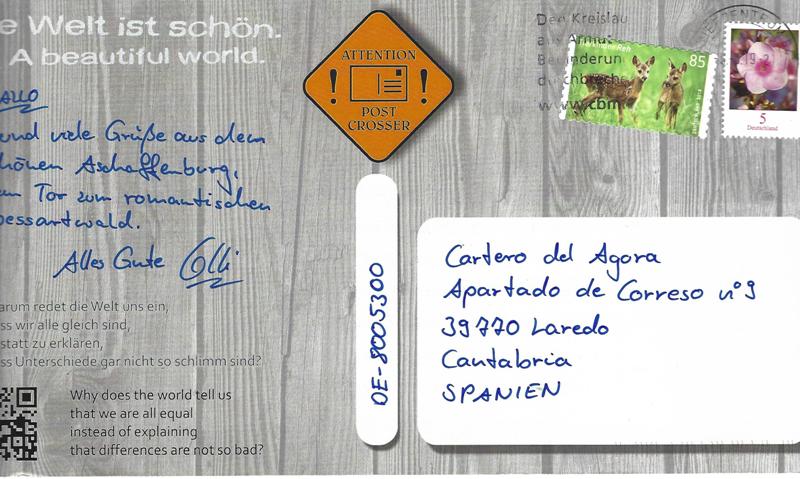 e Welt ist schön.
A beautiful world.
ALLO
und viele Grüße aus dem
hönen Aschaffenburg,
m Tor zum romantischen
pessartwald.
Alles Gute Olli
arum redet die Welt uns ein,
ss wir alle gleich sind,
statt zu erklären,
ss Unterschiede gar nicht so schlimm sind?
Why does the world tell us
that we are all equal
instead of explaining
that differences are not so bad?
ATTENTION
! !
POST
CROSSER
DE-8005300
Den Kreislau
aus Armut
Behinderun
durchbreche
www.cbm
Reh
85
5
Deutschland
Cartero del Agora
Apartado de Correso nº 9
39770 Laredo
Cantabria
SPANIEN